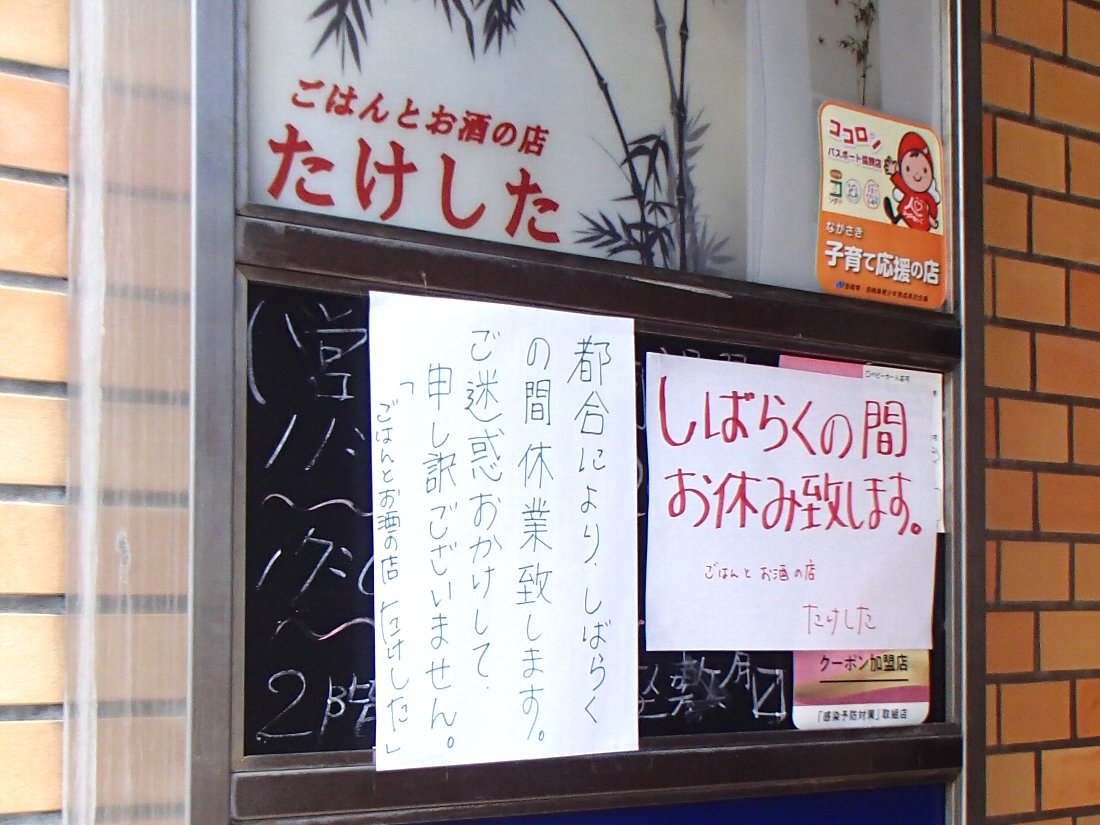 ごはんとお酒の店
たけした
ココロン
パスポート協賛店
ながさき
子育て応援の店
都合により、しばらく
の間休業致します。
ご迷惑おかけして、
申し訳ございません。
ごはんとお酒の店「たけした」
しばらくの間
お休み致します。
ごはんとお酒の店
たけした
(営
2階
座敷
クーポン加盟店
「感染予防対策」取組店